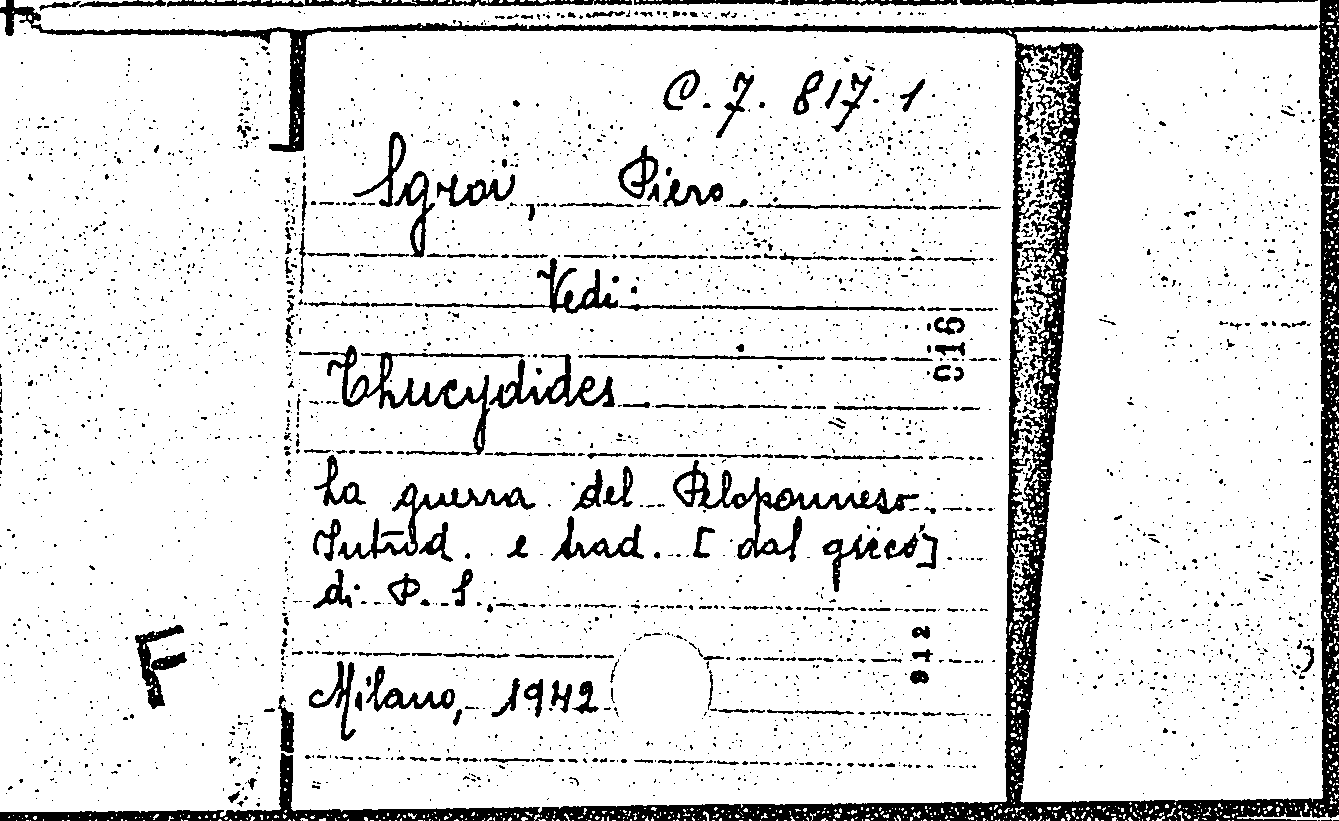 C. 7. 817. 1
Sgroi, Piero.
Vedi:
016
Thucydides
La guerra del Peloponneso.
Introd. e trad. [dal greco]
di P. S.
912
F
Milano, 1942